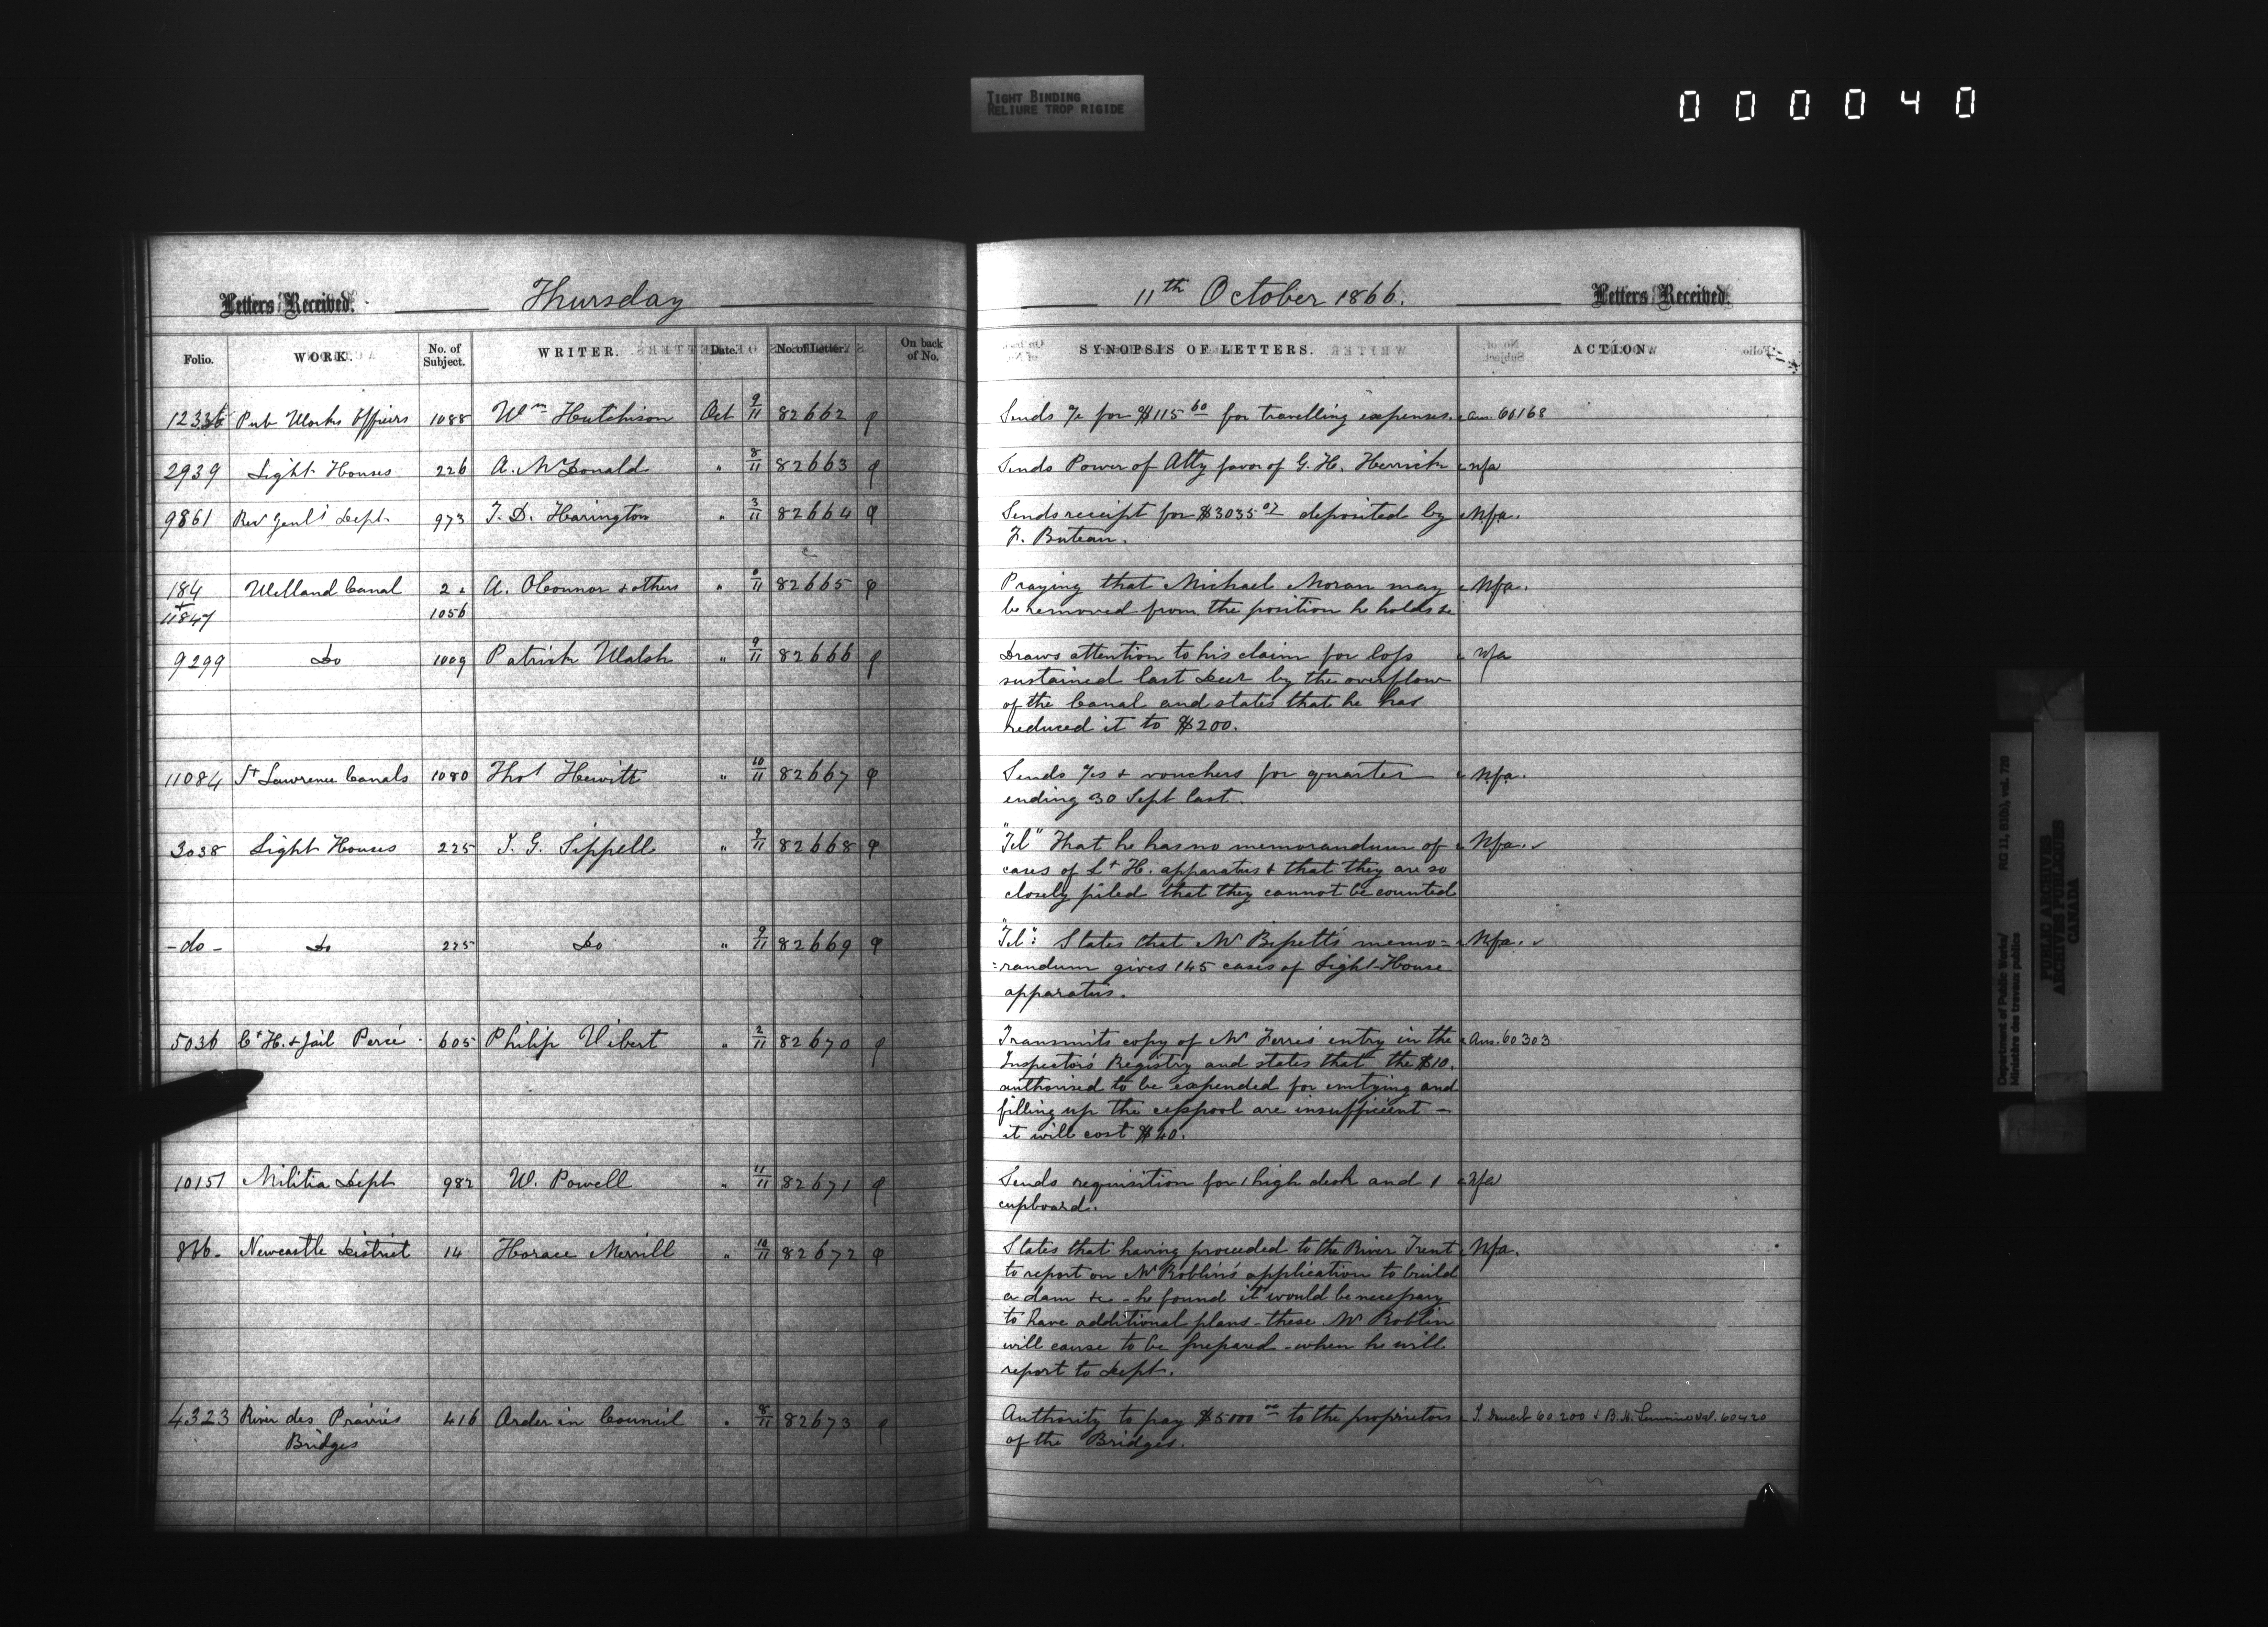 TIGHT BINDING
RELIURE TROP RIGIDE
000040
Letters Received.
Thursday
11th October 1866.
Letters Received.
Folio. WORK. No. of Subject. WRITER. Date. No. of Letter. On back of No.
SYNOPSIS OF LETTERS. ACTION.
Pub Works Officers 1088 Wm Hutchison Oct 9/11 82662
Sends a/c for $115 60 for travelling expenses. Ans. 60168
2939 Light Houses 226 A. McDonald " 8/11 82663
Sends Power of Atty favor of G. H. Herrick nfa
9861 Rev Genl's Dept. 973 T. D. Harington " 3/11 82664
Sends receipt for $3035 07 deposited by Nfa.
F. Buteau.
184 Welland Canal 2 & A. OConnor & others " 11 82665
+ 11847 1056
Praying that Michael Moran may Nfa.
be removed from the position he holds &c
9299 Do 1009 Patrick Walsh " 9/11 82666
Draws attention to his claim for loss nfa
sustained last Decr by the overflow
of the Canal and states that he has
reduced it to $200.
11084 St Lawrence Canals 1080 Thos Hewitt " 10/11 82667
Sends a/cs & vouchers for quarter Nfa.
ending 30 Sept last.
3038 Light Houses 225 J. G. Sippell " 9/11 82668
"Tel" That he has no memorandum of Nfa.
cases of Lt H. apparatus & that they are so
closely piled that they cannot be counted
-do- Do 225 Do " 9/11 82669
"Tel": States that Mr Bissett's memo= Nfa.
=randum gives 145 cases of Light-House
apparatus.
5036 Ct H. & Jail Percé 605 Philip Vibert " 2/11 82670
Transmits copy of Mr Ferris entry in the Ans. 60303
Inspector's Registry and states that the $10.
authorised to be expended for emtying and
filling up the cesspool are insufficient -
it will cost $40.
10151 Militia Dept 982 W. Powell " 11/11 82671
Sends requisition for 1 high desk and 1 nfa
cupboard.
Newcastle District 14 Horace Merrill " 10/11 82672
States that having proceeded to the River Trent Nfa.
to report on Mr Roblin's application to build
a dam &c - he found it would be necessary
to have additional plans - these Mr Roblin
will cause to be prepared - when he will
report to Dept.
4323 River des Prairies 416 Order in Council " 8/11 82673
Bridges
Authority to pay $5000 00 to the proprietors 60200 & 60420
of the Bridges.
Department of Public Works/
Ministère des travaux publics
RG 11, B1(b), vol. 720
PUBLIC ARCHIVES
ARCHIVES PUBLIQUES
CANADA